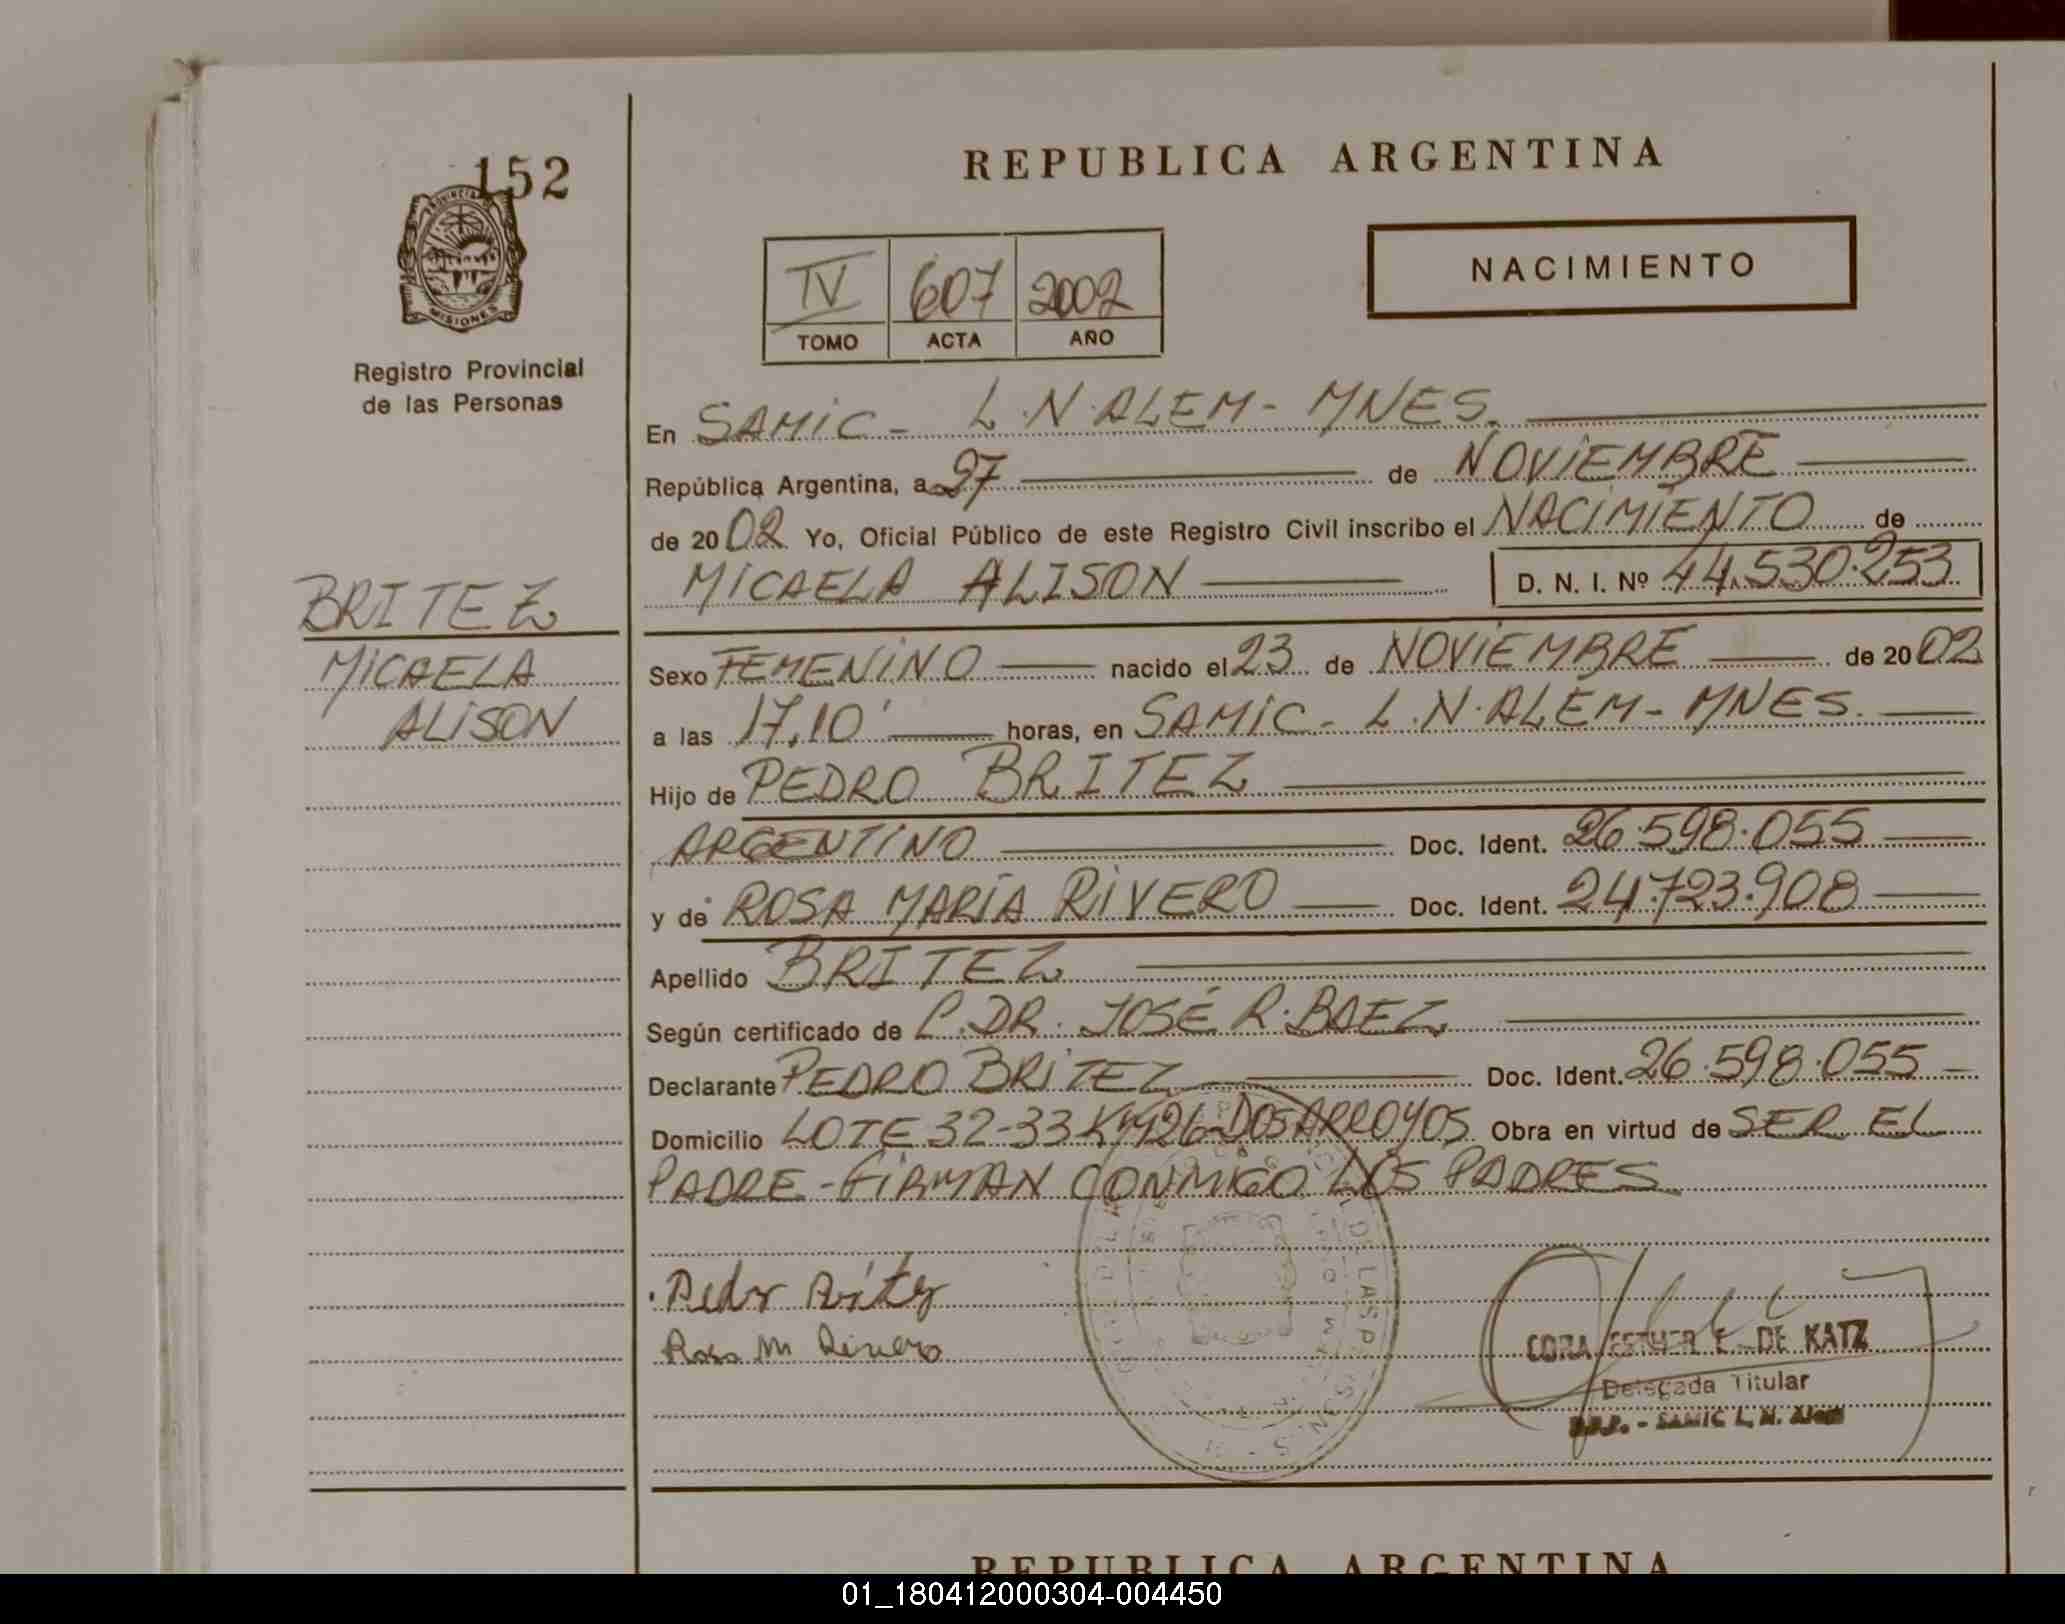 152
PROVINCIA DE
MISIONES
Registro Provincial
de las Personas
REPUBLICA ARGENTINA
NACIMIENTO
IV 607 2002
TOMO ACTA AÑO
En SAMIC - L.N.ALEM - MNES.
República Argentina, a 27 de NOVIEMBRE
de 2002 Yo, Oficial Público de este Registro Civil inscribo el NACIMIENTO de
MICAELA ALISON D. N. I. Nº 44.530.253
BRITEZ
MICAELA
ALISON
Sexo FEMENINO nacido el 23 de NOVIEMBRE de 2002
a las 17,10' horas, en SAMIC - L.N.ALEM - MNES.
Hijo de PEDRO BRITEZ
ARGENTINO Doc. Ident. 26.598.055
y de ROSA MARÍA RIVERO Doc. Ident. 24.723.908
Apellido BRITEZ
Según certificado de P. DR. JOSÉ R. BAEZ
Declarante PEDRO BRITEZ Doc. Ident. 26.598.055
Domicilio LOTE 32-33 Km26-DOS ARROYOS Obra en virtud de SER EL
PADRE - FIRMAN CONMIGO LOS PADRES
Pedro Britez
Rosa M Rivero
CORA ESTHER E. DE KATZ
Delegada Titular
- SAMIC L. N. Alem
REPUBLICA ARGENTINA
01_180412000304-004450